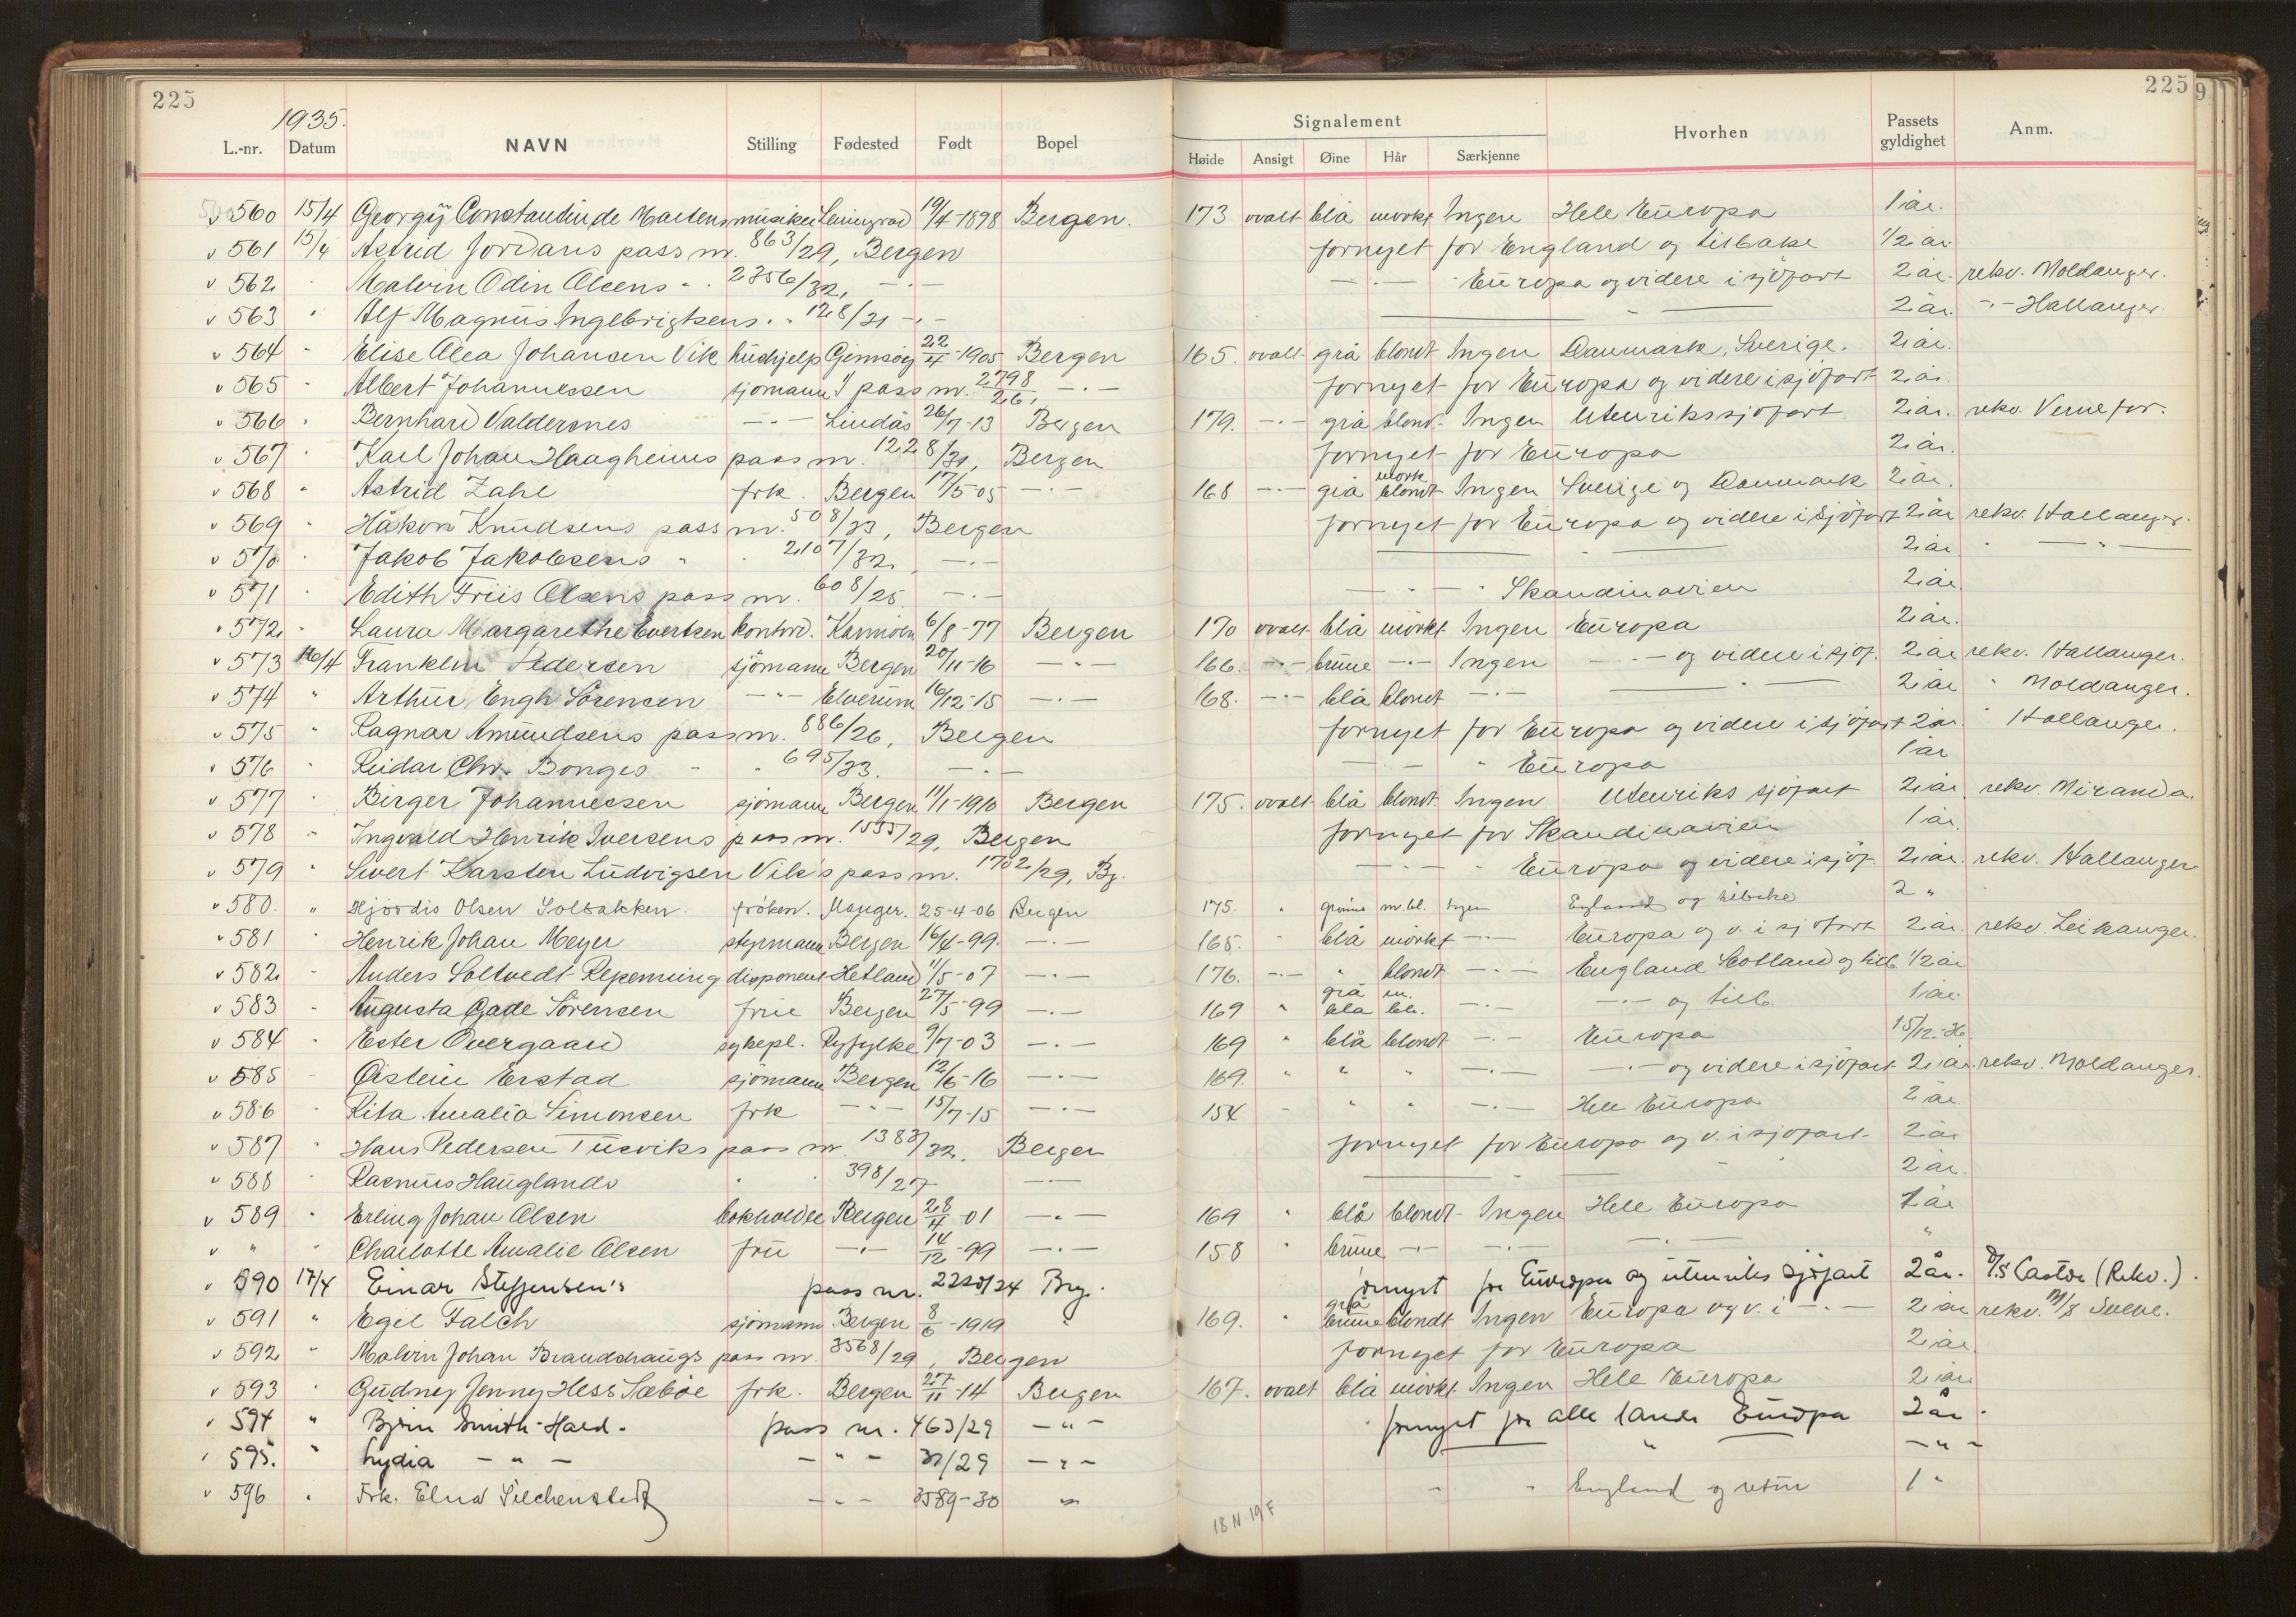 225
1935.
L.-nr. Datum NAVN Stilling Fødested Født Bopel
Signalement
Høide Ansigt Øine Hår Særkjenne Hvorhen Passets gyldighet Anm.
225
9
v 560 15/4 Georgij Constantin de Martens musiker Leningrad 19/4-1898 Bergen. 173 ovalt blå mørkt Ingen Hele Europa 1 år.
v 561 15/4 Astrid Jordans pass nr. 863/29, Bergen fornyet for England og tilbake 1/2 år
v 562 " Malvin Odin Olsens " " 2356/32, —·— —·— " Europa og videre i sjöfart 2 år. rekv. Moldanger.
v 563 " Alf Magnus Ingebrigtsens " " 128/31 —·— — " — 2 år. —·— Hallanger.
v 564 " Elise Alea Johansen Vik hushjelp Gimsöy 22/4-1905 Bergen 165. ovalt grå blondt Ingen Danmark, Sverige. 2 år.
v 565 " Albert Johannessen sjömann's pass nr. 2798/26, —·— fornyet for Europa og videre i sjöfart 2 år.
v 566 " Bernhard Valdersnes —·— Lindås 26/7-13 Bergen 179. —·— grå blond. Ingen Utenrikssjöfart 2 år. rekv. Vernefor.
v 567 " Karl Johan Haagheims pass nr. 1228/31, Bergen fornyet for Europa 2 år.
v 568 " Astrid Zahl frk. Bergen 17/5-05 —·— 168 —·— grå mörk blondt Ingen Sverige og Danmark 2 år.
v 569 " Håkon Knudsens pass nr. 508/33, Bergen fornyet for Europa og videre i sjöfart 2 år rekv. Hallanger.
v 570 " Jakob Jakobsens " " 2107/32. —·— — " — 2 år " — " —
v 571 " Edith Friis Olsens pass nr. 608/25. —·— — " — " Skandinavien 2 år.
v 572 " Laura Margarethe Evertsen kontord. Karmöen 6/8-77 Bergen 170 ovalt blå mörkt Ingen Europa 2 år.
v 573 16/4 Franklin Pedersen sjömann Bergen 20/11-16 — " — 166. —·— brune —·— Ingen —·— og videre i sjöf. 2 år rekv. Hallanger.
v 574 " Arthur Engh Sörensen — " — Elverum 16/12-15 —·— 168. —·— blå blondt —·— — " — 2 år " Moldanger.
v 575 " Ragnar Amundsens pass nr. 886/26, Bergen fornyet for Europa og videre i sjöfart 2 år. " Hallanger.
v 576 " Reidar Chr. Bonges " " 695/33. —·— —·— " Europa 1 år
v 577 " Birger Johannessen sjömann Bergen 11/1-1910 Bergen 175. ovalt blå blondt Ingen Utenriks sjöfart 2 år. rekv. Miranda.
v 578 " Ingvald Henrik Iversens pass nr. 1555/29, Bergen fornyet for Skandinavien 1 år.
v 579 " Sivert Karsten Ludvigsen Vik's pass nr. 1702/29, Bg. —·— " Europa og videre i sjöf. 2 år. rekv. Hallanger
v 580. " Hjördis Olsen Solbakken. fröken. Manger. 25-4-06 Bergen 175. " grönne m.bl. Ingen England og tilbake 2 "
v 581 " Henrik Johan Meyer styrmann Bergen 16/4-99. —·— 165. " blå mörkt —·— Europa og v. i sjöfart 2 år. rekv. Leikanger.
v 582 " Anders Soltvedt Repenning disponent Hetland 11/5-07 —·— 176. —·— " blondt —·— England Scotland og tilb 1/2 år
v 583 " Augusta Gade Sörensen frue Bergen 27/5-99 —·— 169 " grå blå m. bl. —·— —·— og tilb. 1 år.
v 584 " Ester Overgaard sykepl. Ryfylke 9/7-03 —·— 169 " blå blondt —·— Europa 15/12-36
v 585 " Øistein Erstad sjömann Bergen 12/6-16 —·— 169. " " " —·— —·— og videre i sjöfart 2 år. rekv. Moldanger.
v 586 " Rita Amalia Simonsen frk —·— 15/7-15 —·— 154 " " " —·— Hele Europa 2 år
v 587 " Hans Pedersen Tueviks pass nr. 1383/32. Bergen fornyet for Europa og v. i sjöfart 2 år
v 588 " Rasmus Hauglands " " 398/27 —·— — " — " 2 år.
v 589 " Erling Johan Olsen bokholder Bergen 28/4-01 —·— 169 " blå blondt Ingen Hele Europa 1 år
v " " Charlotte Amalie Olsen fru —·— 14/12-99 —·— 158 " brune —·— —·— —·— "
v 590 17/4 Einar Steffensen's pass nr. 2220/24 Brg. fornyet for Europa og utenriks sjöfart 2 år. D/S Castor (Rekv.).
v 591 " Egil Falch sjömann Bergen 8/6-1919 " 169. " grå brune blondt Ingen Europa og v. i —·— 2 år rekv. M/S Svene.
v 592 " Malvin Johan Brandshaugs pass nr. 3568/29, Bergen fornyet for Europa 2 år
v 593 " Gudney Jenny Hess Sæböe frk. Bergen 27/11-14 Bergen 167. ovalt blå mörkt Ingen Hele Europa 2 år
v 594 " Björn Smith-Hald. pass nr. 463/29 — " — fornyet for alle lande Europa 2 år.
v 595. " Lydia — " — — " — 32/29 — " — " — " —
v 596 " Frk. Elna — " — 3589-30 " " " England og retur 1 "
18 N 19 F